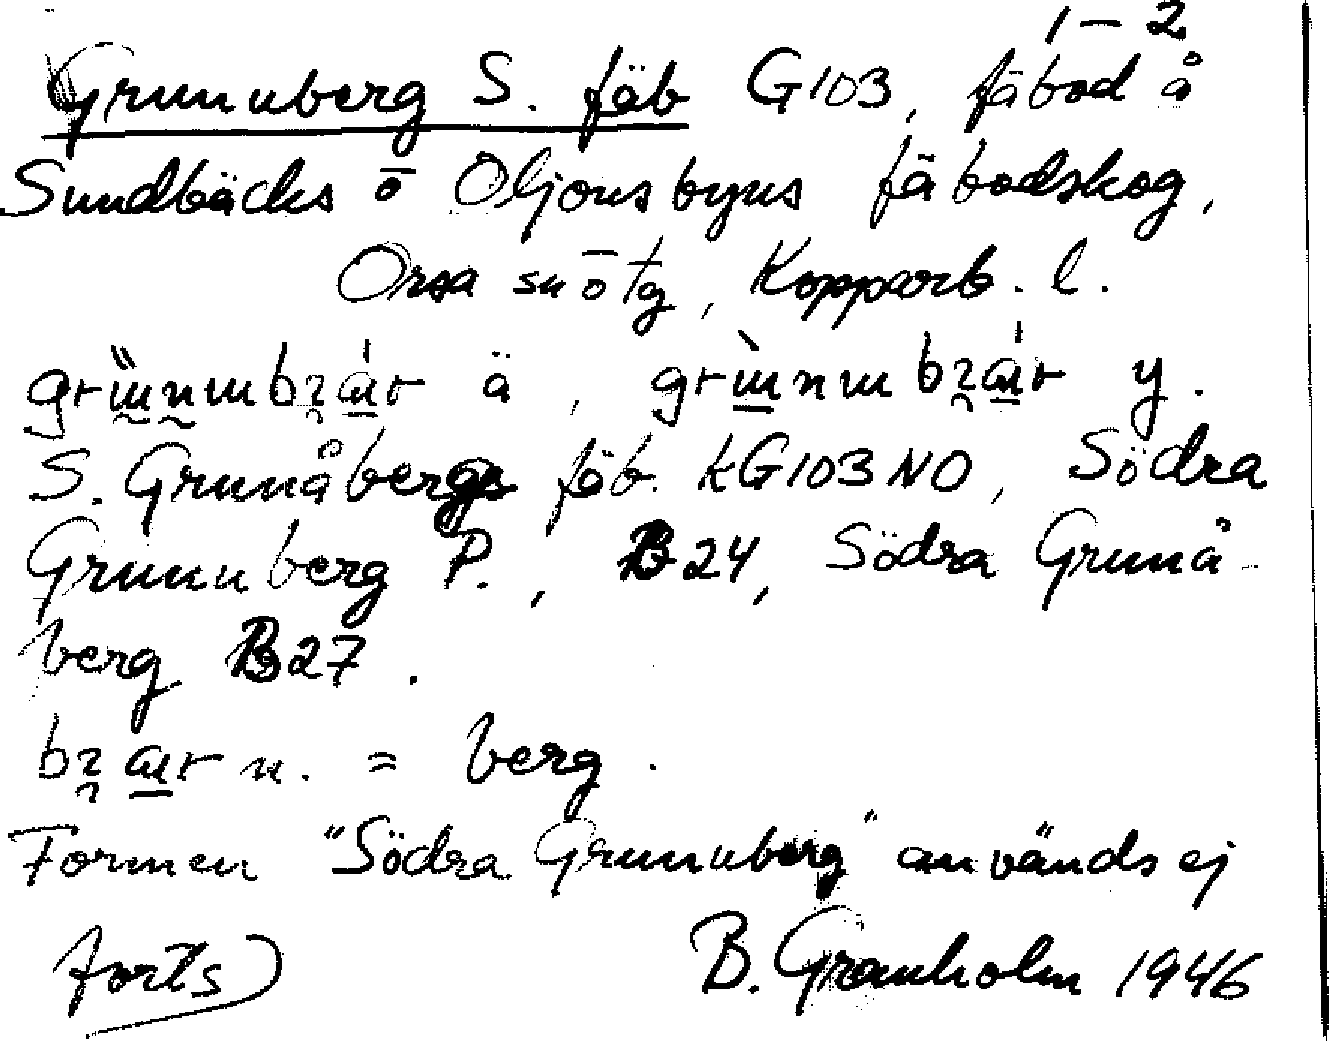 1-2
Grunuberg S. fäb G103, fäbod å
Sundbäcks o Oljonsbyns fäbodskog,
Orsa sn o tg, Kopparb. l.
ä, y.
S. Grunåbergs fäb. kG103NO, Södra
Grunuberg P., B24, Södra Grunå-
berg B27.
n. = berg.
Formen "Södra Grunuberg" används ej
forts) B. Granholm 1946